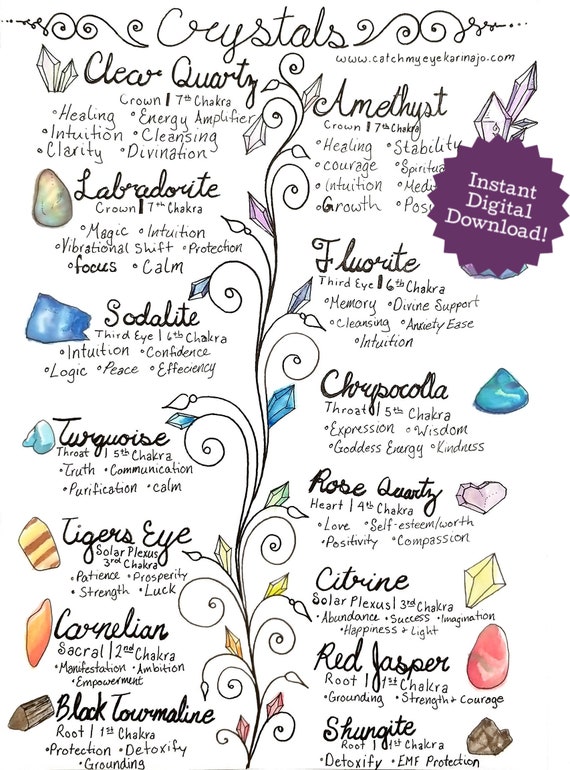 Crystals
www.catchmyeyekarinajo.com
Clear Quartz
Crown | 7th Chakra
•Healing •Energy Amplifier
•Intuition •Cleansing
•Clarity •Divination
Amethyst
Crown | 7th Chakra
•Healing •Stability
•courage
•Intuition
•Growth
Instant
Digital
Download!
Labradorite
Crown | 7th Chakra
•Magic •Intuition
•Vibrational Shift •Protection
•focus •Calm
Fluorite
Third Eye | 6th Chakra
•Memory •Divine Support
•Cleansing •Anxiety Ease
•Intuition
Sodalite
Third Eye | 6th Chakra
•Intuition •Confidence
•Logic •Peace •Effeciency
Chrysocolla
Throat | 5th Chakra
•Expression •Wisdom
•Goddess Energy •Kindness
Turquoise
Throat | 5th Chakra
•Truth •Communication
•Purification •calm
Rose Quartz
Heart | 4th Chakra
•Love •Self-esteem/worth
•Positivity •Compassion
Tigers Eye
Solar Plexus
3rd Chakra
•Patience •Prosperity
•Strength •Luck
Citrine
Solar Plexus | 3rd Chakra
•Abundance •Success •Imagination
•Happiness + Light
Carnelian
Sacral | 2nd Chakra
•Manifestation •Ambition
•Empowerment
Red Jasper
Root | 1st Chakra
•Grounding •Strength + Courage
Black Tourmaline
Root | 1st Chakra
•Protection •Detoxify
•Grounding
Shungite
Root | 1st Chakra
•Detoxify •EMF Protection